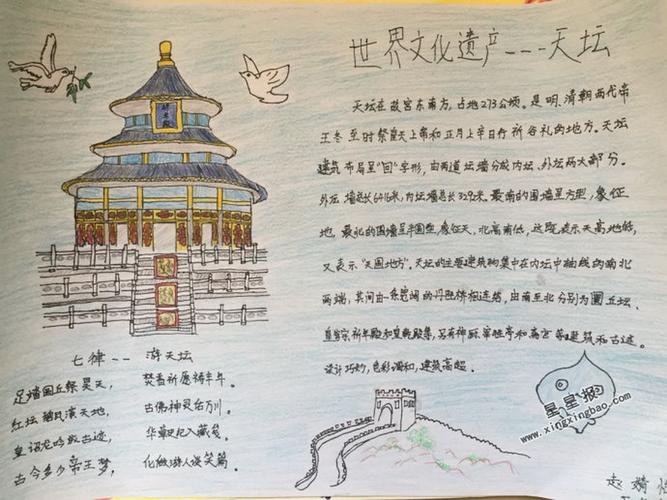 世界文化遗产---天坛
天坛在故宫东南方,占地273公顷。是明、清朝两代帝
王冬至时祭皇天上帝和正月上辛日行祈谷礼的地方。天坛
建筑布局呈“回”字形,由两道坛墙分成内坛、外坛两大部分。
外坛墙总长6416米,内坛墙总长3292米。最南的围墙呈方型,象征
地,最北的围墙呈半圆型,象征天,北高南低,这既表示天高地低,
又表示“天圆地方”。天坛的主要建筑物集中在内坛中轴线的南北
两端,其间由一条宽阔的丹陛桥相连结,由南至北分别为圜丘坛、
皇穹宇祈年殿和皇乾殿等,另有神厨、宰牲亭和斋宫等建筑和古迹。
设计巧妙,色彩调和,建筑高超。
七律--游天坛
足踏圜丘祭昊天, 焚香祈愿祷丰年。
红坛 天地, 古佛神灵 万川。
皇 龙吟 古迹, 华 入藏
古今多少帝王梦, 化做游人谈笑篇。
星星报
www.xingxingbao.com
赵